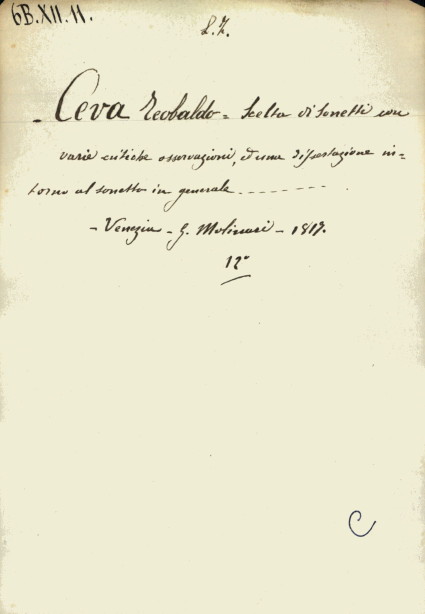 6B.XII.11.
L.I.
- Ceva Teobaldo - Scelta di sonetti con
varie critiche osservazioni, ed una dissertazione in=
torno al sonetto in generale - - - - - - - -
- Venezia - G. Molinari - 1817.
12°
C